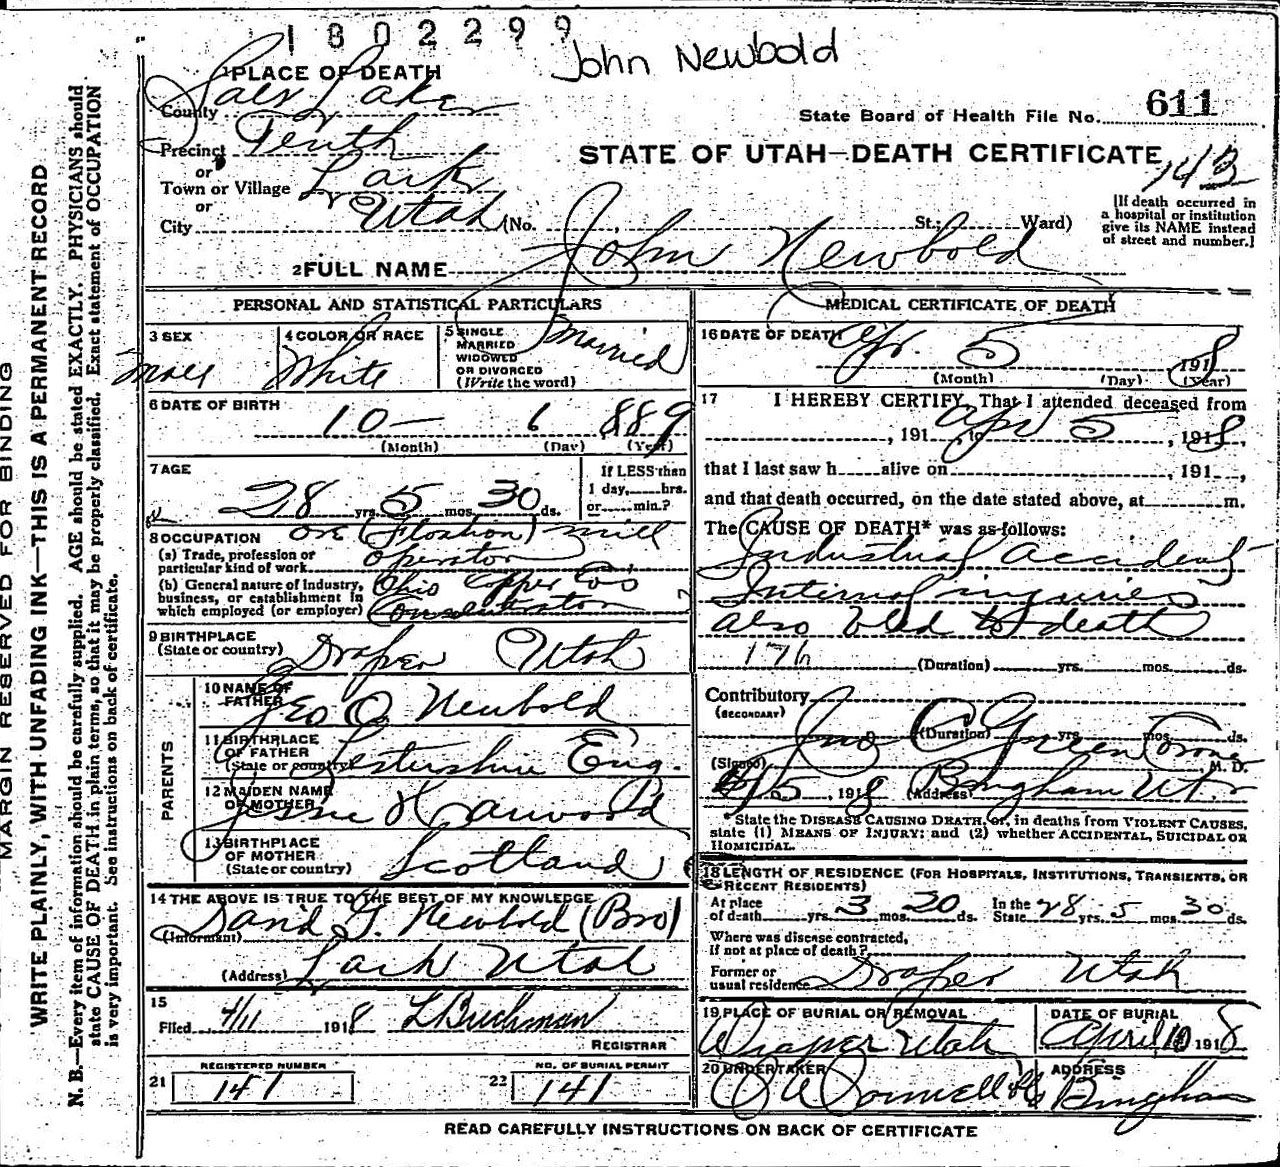 1802299
John Newbold
1 PLACE OF DEATH
County Salt Lake
State Board of Health File No. 611
Precinct Tenth
STATE OF UTAH—DEATH CERTIFICATE
143
or
Town or Village Lark
or
City Utah (No. St.; Ward)
[If death occurred in
a hospital or institution
give its NAME instead
of street and number.]
2 FULL NAME John Newbold
PERSONAL AND STATISTICAL PARTICULARS
3 SEX
Male
4 COLOR OR RACE
White
5 SINGLE
MARRIED
WIDOWED
OR DIVORCED
(Write the word)
Married
6 DATE OF BIRTH
10 — 6 889
(Month) (Day) (Year)
7 AGE
28 yrs. 5 mos. 30 ds.
If LESS than
1 day, hrs.
or min.?
8 OCCUPATION
(a) Trade, profession or
particular kind of work
ore (Flotation) mill
operator
(b) General nature of industry,
business, or establishment in
which employed (or employer)
Ohio Copper Co's
9 BIRTHPLACE
(State or country) Draper Utah
PARENTS
10 NAME OF
FATHER
Geo O Newbold
11 BIRTHPLACE
OF FATHER
(State or country) Eng.
12 MAIDEN NAME
OF MOTHER
Jessie Harwood
13 BIRTHPLACE
OF MOTHER
(State or country)
Scotland
14 THE ABOVE IS TRUE TO THE BEST OF MY KNOWLEDGE
(Informant) G. Newbold (Bro)
(Address) Lark Utah
15
Filed 4/11 1918
REGISTRAR
21
REGISTERED NUMBER
141
22
NO. OF BURIAL PERMIT
141
MEDICAL CERTIFICATE OF DEATH
16 DATE OF DEATH
Apr. 5 1918
(Month) (Day) (Year)
17 I HEREBY CERTIFY, That I attended deceased from
, 191 , to Apr 5 , 1918,
that I last saw h alive on , 191 ,
and that death occurred, on the date stated above, at m.
The CAUSE OF DEATH* was as follows:
Industrial accident
Internal injuries
also bled to death
176
(Duration) yrs. mos. ds.
Contributory
(SECONDARY)
(Duration) yrs. mos. ds.
(Signed) Jno C Green M. D.
4/5, 1918 (Address) Bingham Ut.
*State the DISEASE CAUSING DEATH, or, in deaths from VIOLENT CAUSES,
state (1) MEANS OF INJURY; and (2) whether ACCIDENTAL, SUICIDAL OR
HOMICIDAL.
18 LENGTH OF RESIDENCE (FOR HOSPITALS, INSTITUTIONS, TRANSIENTS, OR
RECENT RESIDENTS)
At place
of death yrs. 3 mos. 30 ds.
In the
State 28 yrs. 5 mos. 30 ds.
Where was disease contracted,
if not at place of death?
Former or
usual residence Draper Utah
19 PLACE OF BURIAL OR REMOVAL
Draper Utah
DATE OF BURIAL
April 10 1918
20 UNDERTAKER
ADDRESS
Bingham
READ CAREFULLY INSTRUCTIONS ON BACK OF CERTIFICATE
MARGIN RESERVED FOR BINDING
WRITE PLAINLY, WITH UNFADING INK—THIS IS A PERMANENT RECORD
N. B.—Every item of information should be carefully supplied. AGE should be stated EXACTLY. PHYSICIANS should
state CAUSE OF DEATH in plain terms, so that it may be properly classified. Exact statement of OCCUPATION
is very important. See instructions on back of certificate.